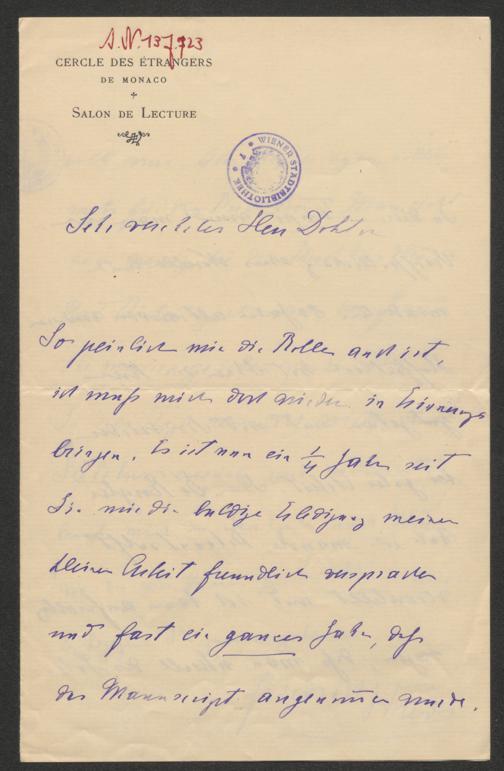 A.N. 137.723
CERCLE DES ÉTRANGERS
DE MONACO
SALON DE LECTURE
WIENER STADTBIBLIOTHEK
Sehr verehrter Herr Doktor
So peinlich mir die Rolle auch ist
ich muß mich doch wieder in Erinnerung
bringen. Es ist nun ein ¼ Jahr seit
Sie mir die baldige Erledigung meiner
kleinen Arbeit freundlich versprachen
und fast ein ganzes Jahr, daß
das Manuscript angenom̄en wurde.